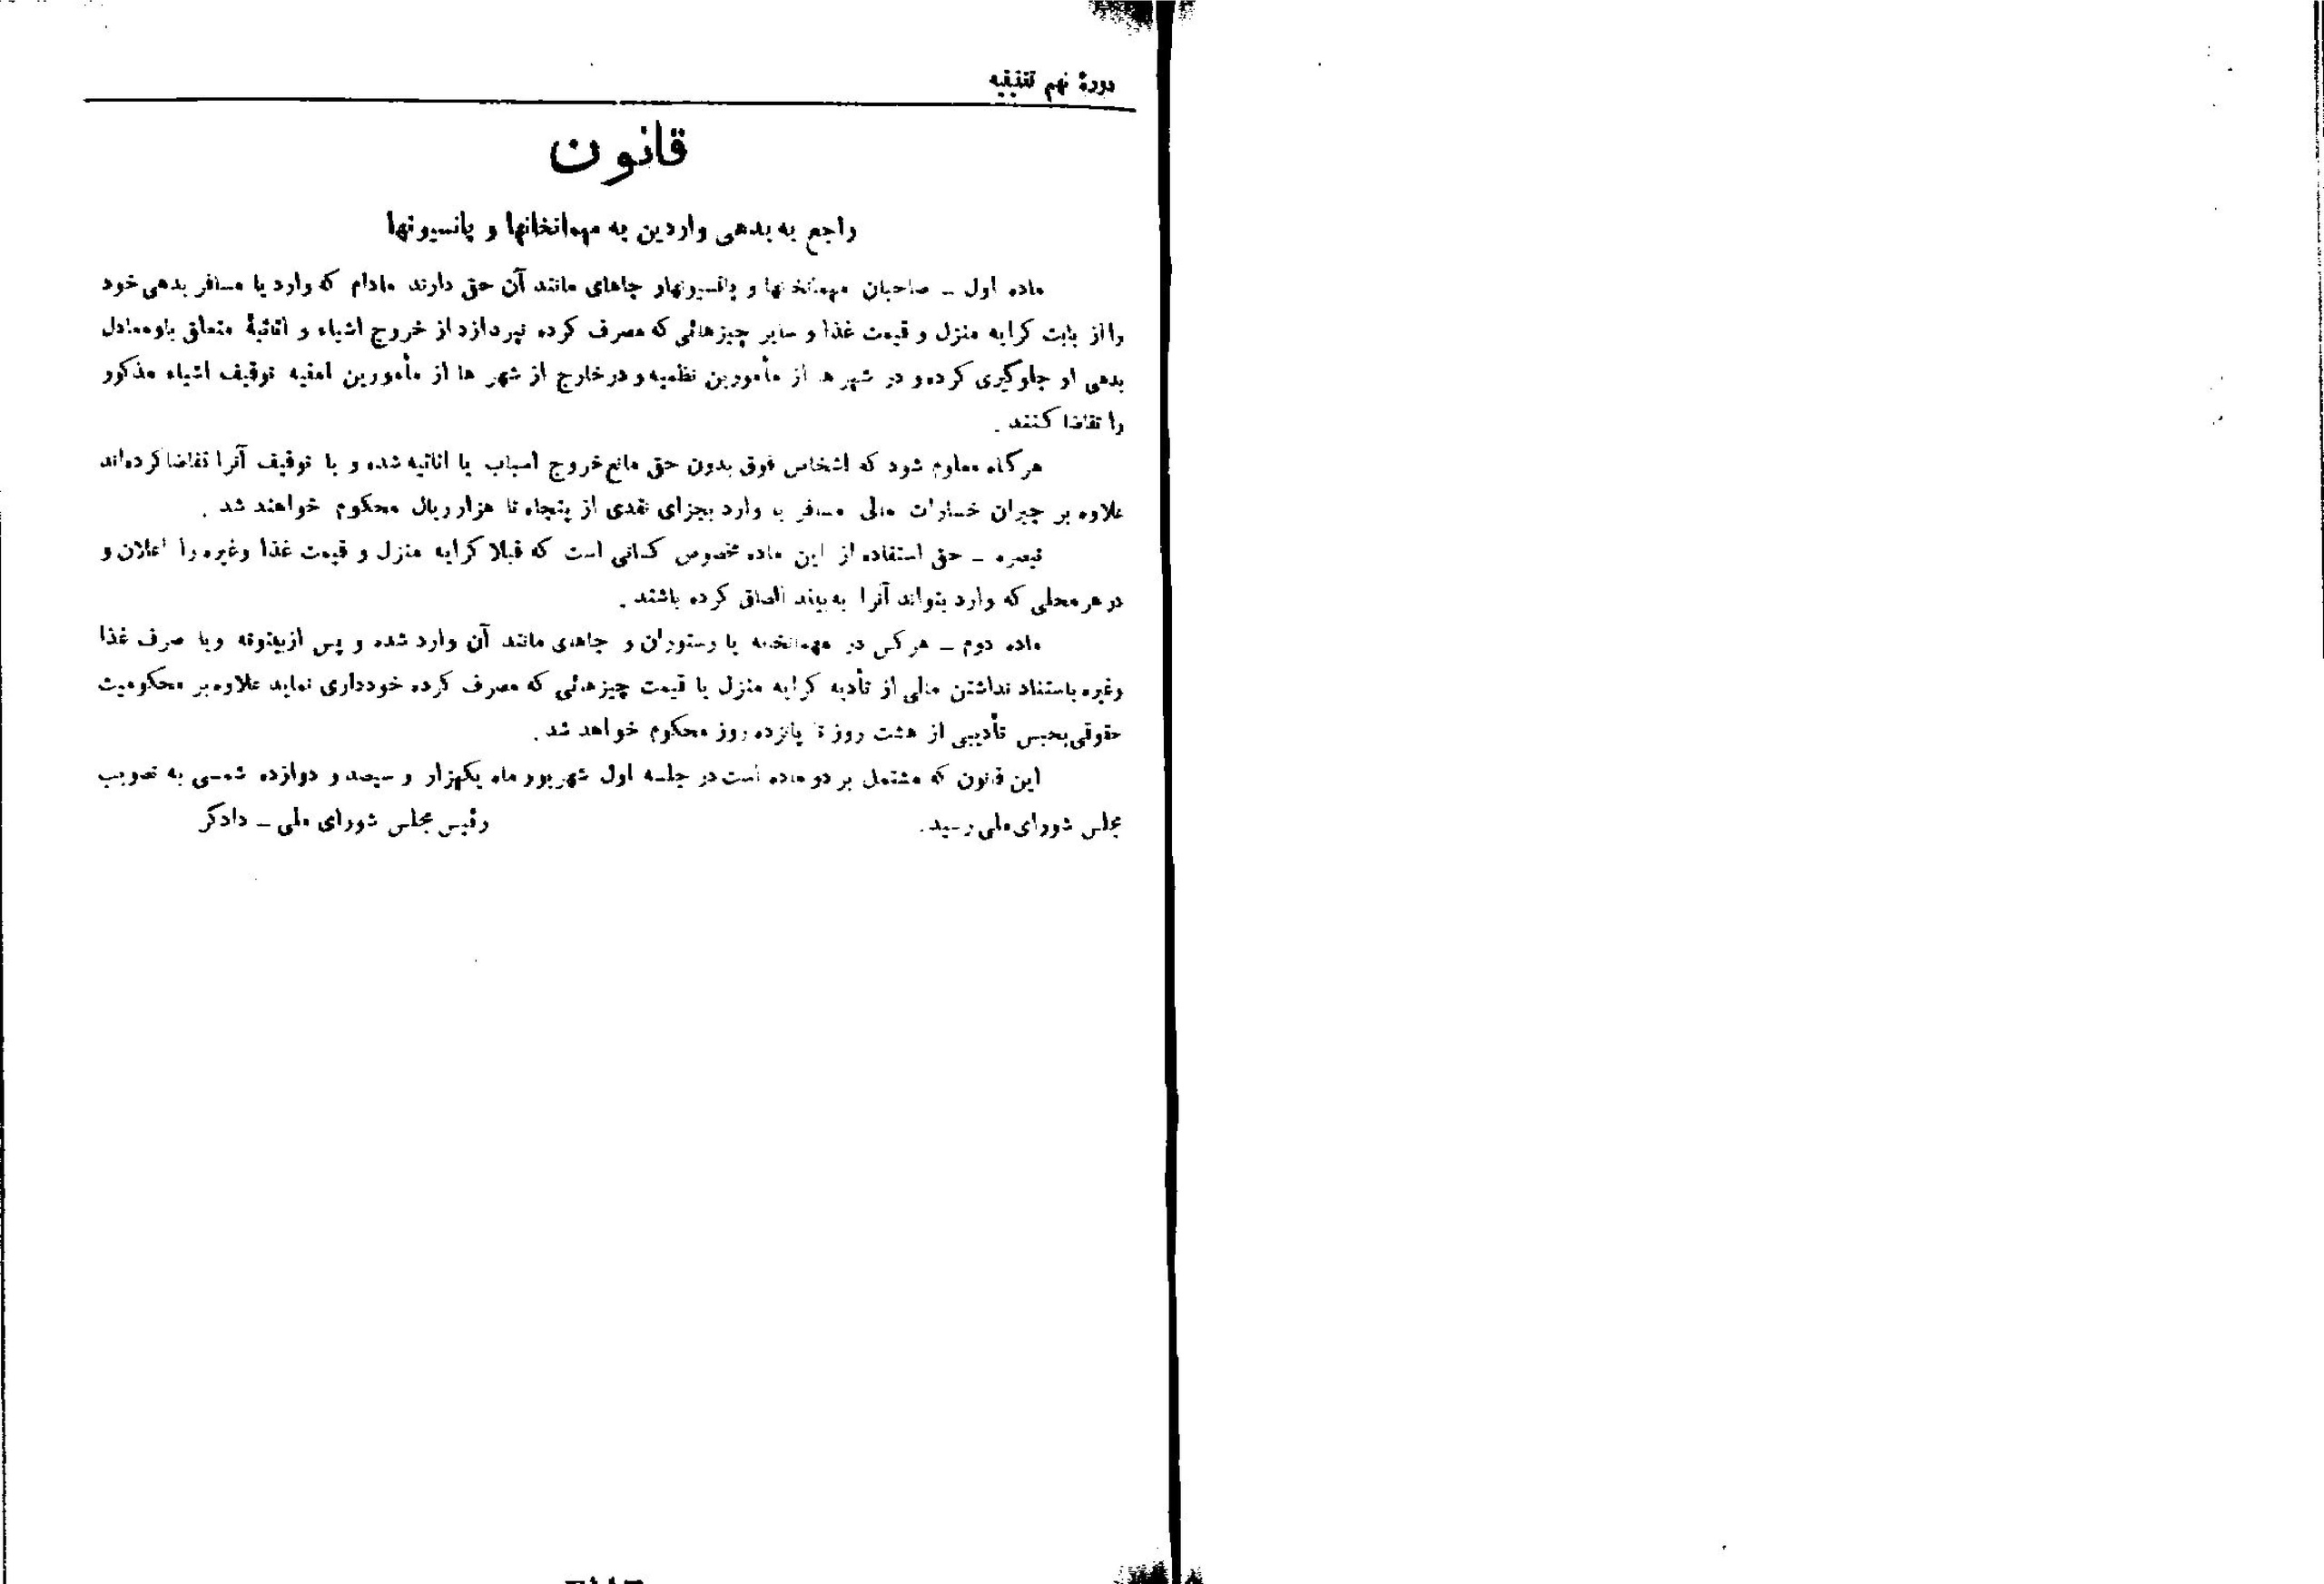 دورهٔ نهم تقنینیه
قانون
راجع به بدهی واردین به مهمانخانها و پانسیونها
ماده اول ـ صاحبان مهمانخانها و پانسیونها و جاهای مانند آن حق دارند مادام که وارد یا مسافر بدهی خود
را از بابت کرایه منزل و قیمت غذا و سایر چیزهائی که مصرف کرده نپردازد از خروج اشیاء و اثاثیهٔ متعلق باو معادل
بدهی او جلوگیری کرده و در شهر ها از مأمورین نظمیه و در خارج از شهر ها از مأمورین امنیه توقیف اشیاء مذکور
را تقاضا کنند .
هرگاه معلوم شود که اشخاص فوق بدون حق مانع خروج اسباب یا اثاثیه شده و یا توقیف آنرا تقاضا کرده‌اند
علاوه بر جبران خسارات مالی مسافر یا وارد بجزای نقدی از پنجاه تا هزار ریال محکوم خواهند شد .
تبصره ـ حق استفاده از این ماده مخصوص کسانی است که قبلا کرایه منزل و قیمت غذا وغیره را اعلان و
در هر محلی که وارد بتواند آنرا به‌بیند الصاق کرده باشند .
ماده دوم ـ هرکس در مهمانخانه یا رستوران و جاهای مانند آن وارد شده و پس از بیتوته ویا صرف غذا
وغیره باستناد نداشتن مالی از تأدیه کرایه منزل یا قیمت چیزهائی که مصرف کرده خودداری نماید علاوه بر محکومیت
حقوقی بحبس تأدیبی از هشت روز تا پانزده روز محکوم خواهد شد .
این قانون که مشتمل بر دو ماده است در جلسه اول شهریور ماه یکهزار و سیصد و دوازده شمسی به تصویب
مجلس شورای ملی رسید .
رئیس مجلس شورای ملی ـ دادگر